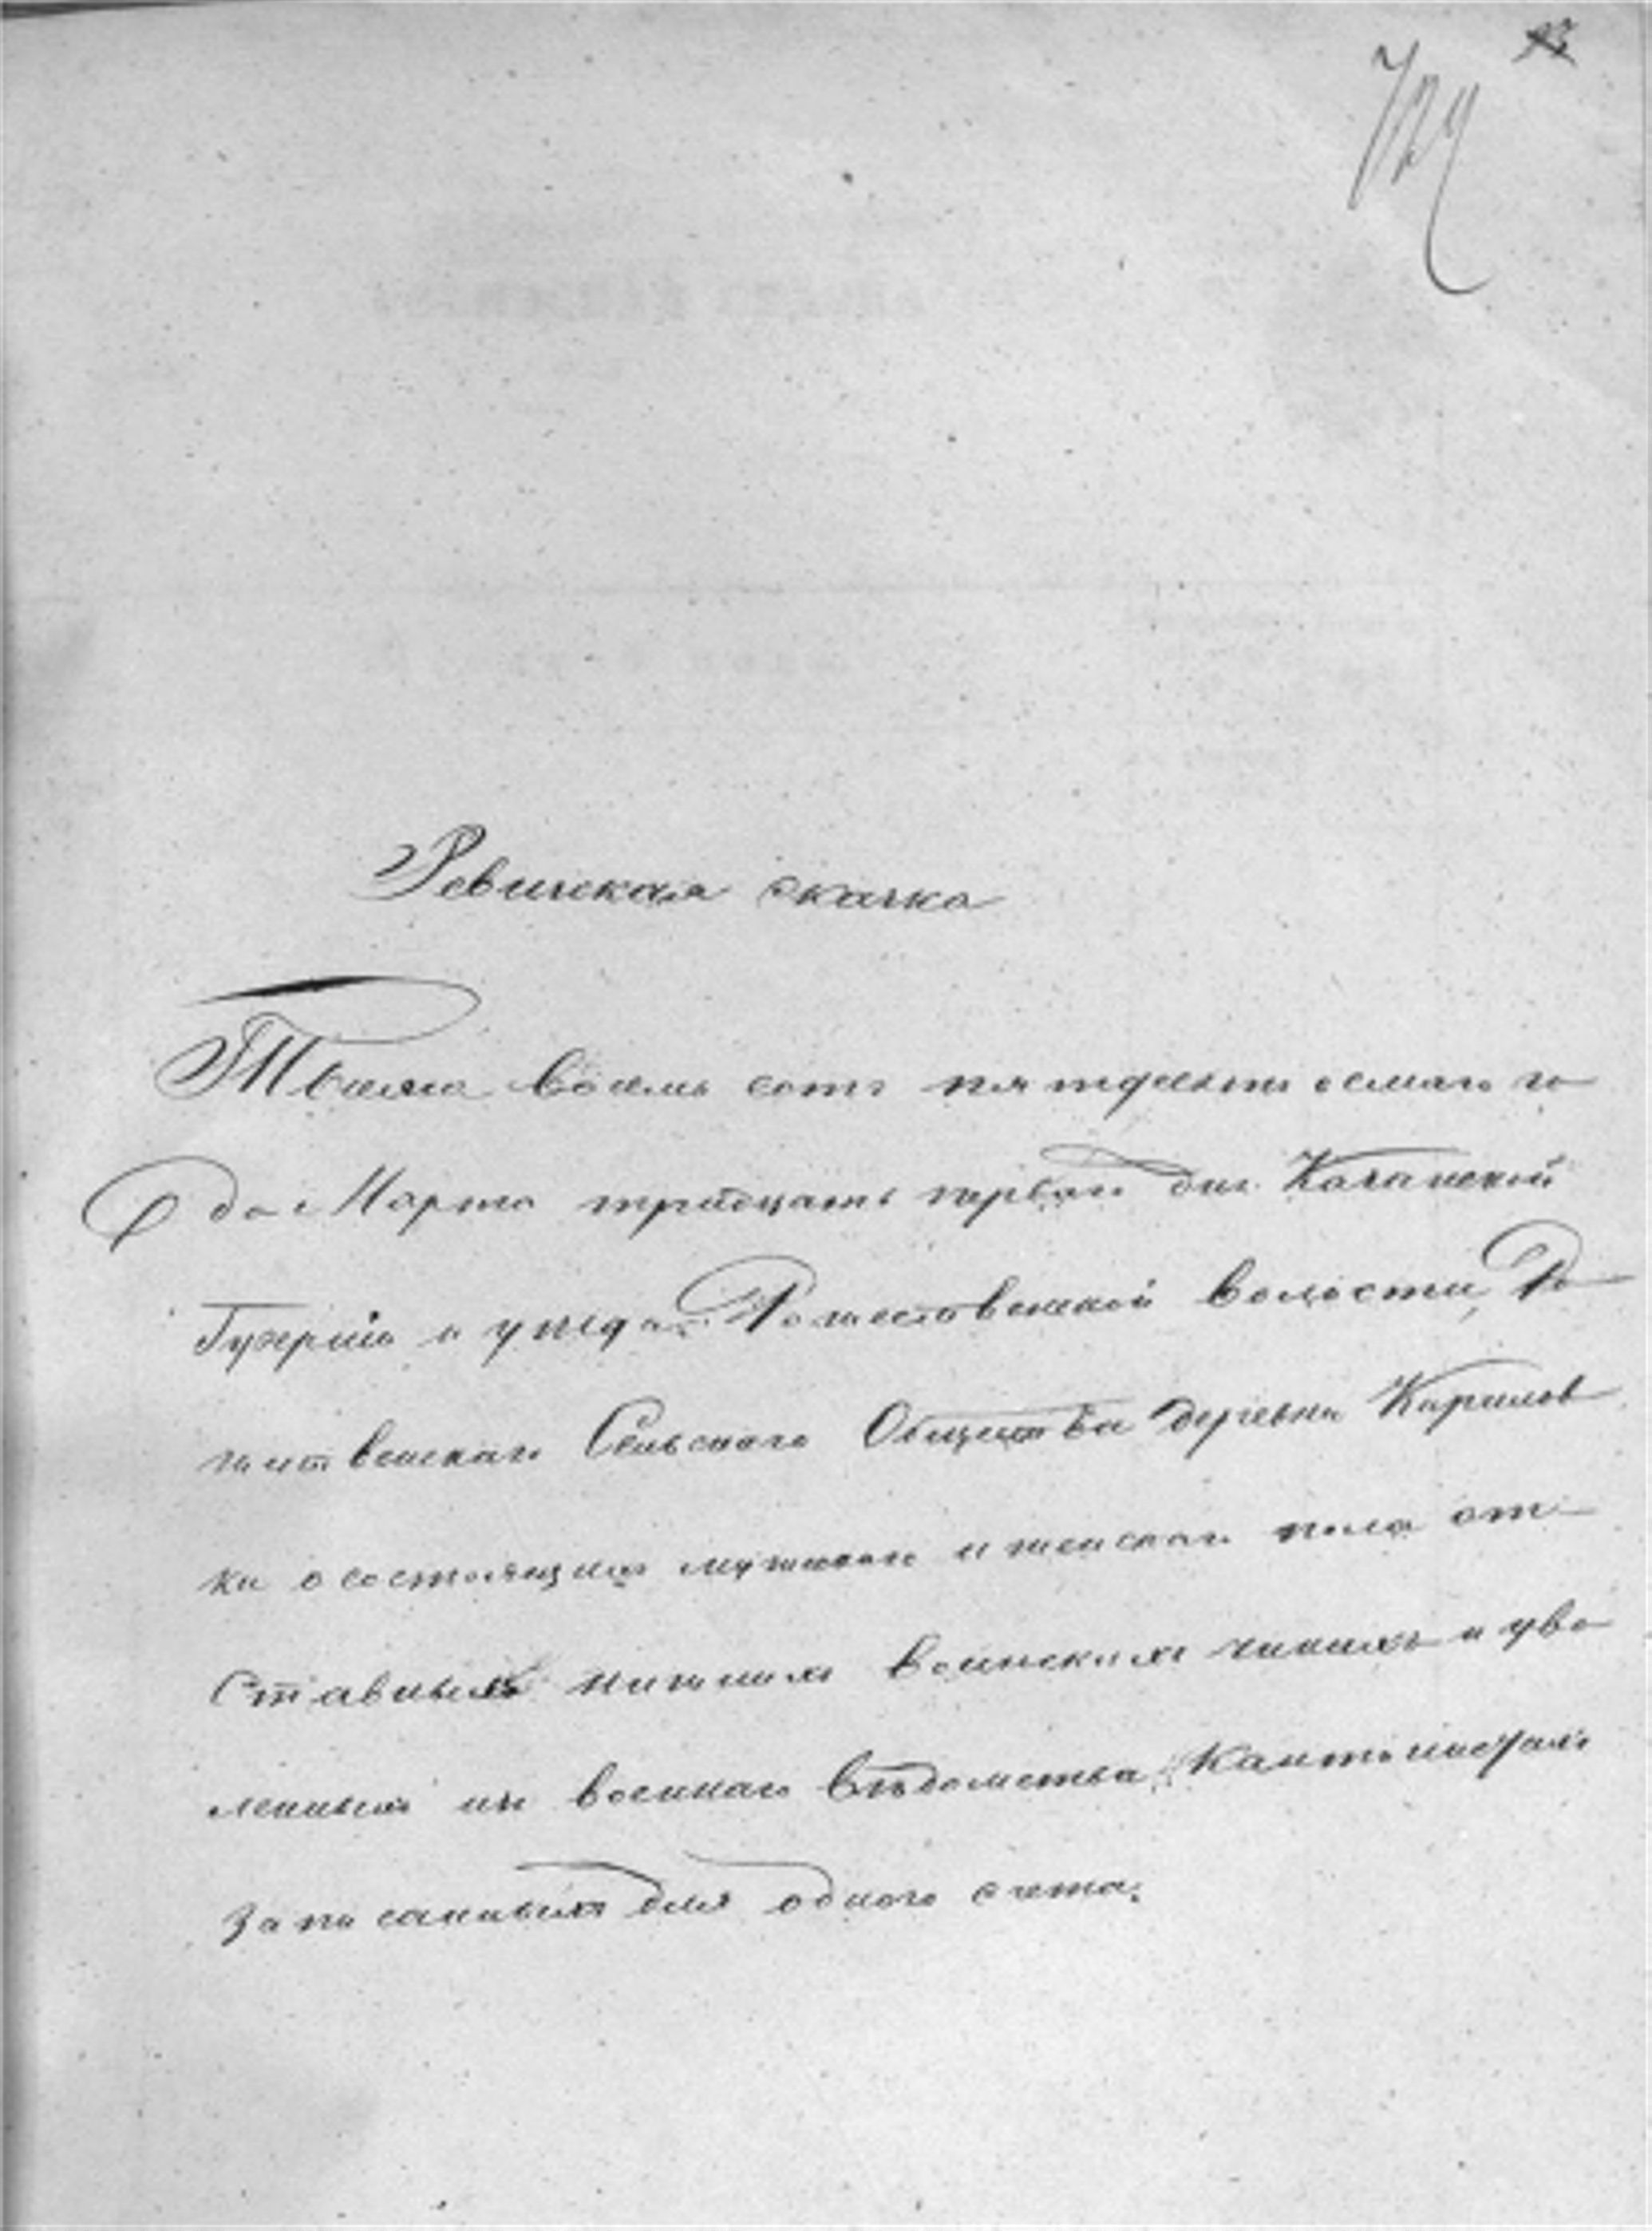 124
Ревиская скаска
Тысяча восемь сотъ пятдесятъ осмаго го
да Марта тридцать перваго дня Казанской
Губерніи и уѣзда Рожественской волости Ро
жественскаго Сельскаго Общества деревни Кирилов
ки о состоящихъ мужскаго и женскаго пола от
ставныхъ нижнихъ воинскихъ чинахъ и уво
леныхъ изъ военнаго вѣдомства Кантонистахъ
записаныхъ для одного счета.